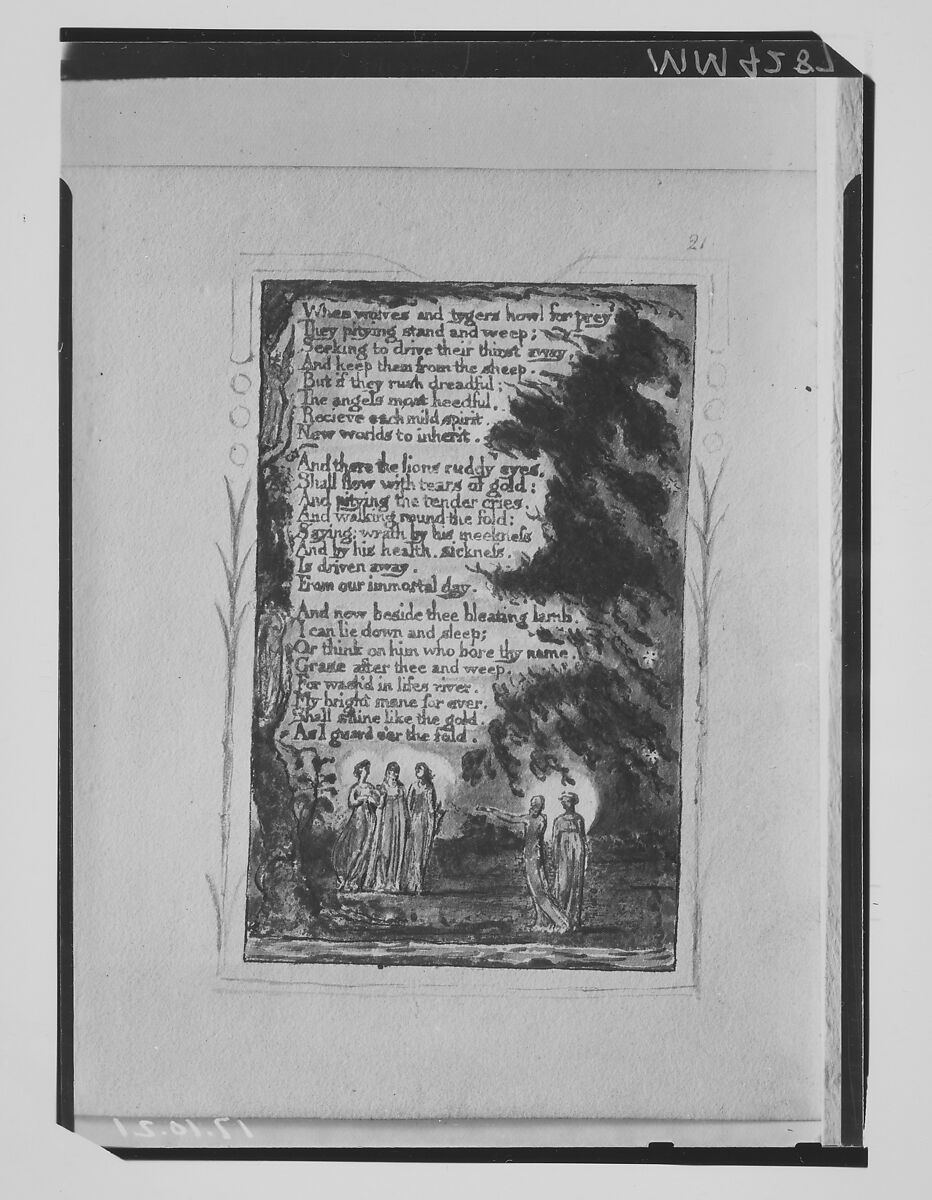 WW4287
21
When wolves and tygers howl for prey
They pitying stand and weep;
Seeking to drive their thirst away,
And keep them from the sheep.
But if they rush dreadful;
The angels most heedful,
Recieve each mild spirit.
New worlds to inherit.
And there the lions ruddy eyes,
Shall flow with tears of gold:
And pitying the tender cries,
And walking round the fold:
Saying: wrath by his meekness
And by his health. sickness.
Is driven away.
From our immortal day.
And now beside thee bleating lamb.
I can lie down and sleep;
Or think on him who bore thy name.
Graze after thee and weep.
For wash'd in lifes river.
My bright mane for ever.
Shall shine like the gold.
As I guard o'er the fold.
17.10.21